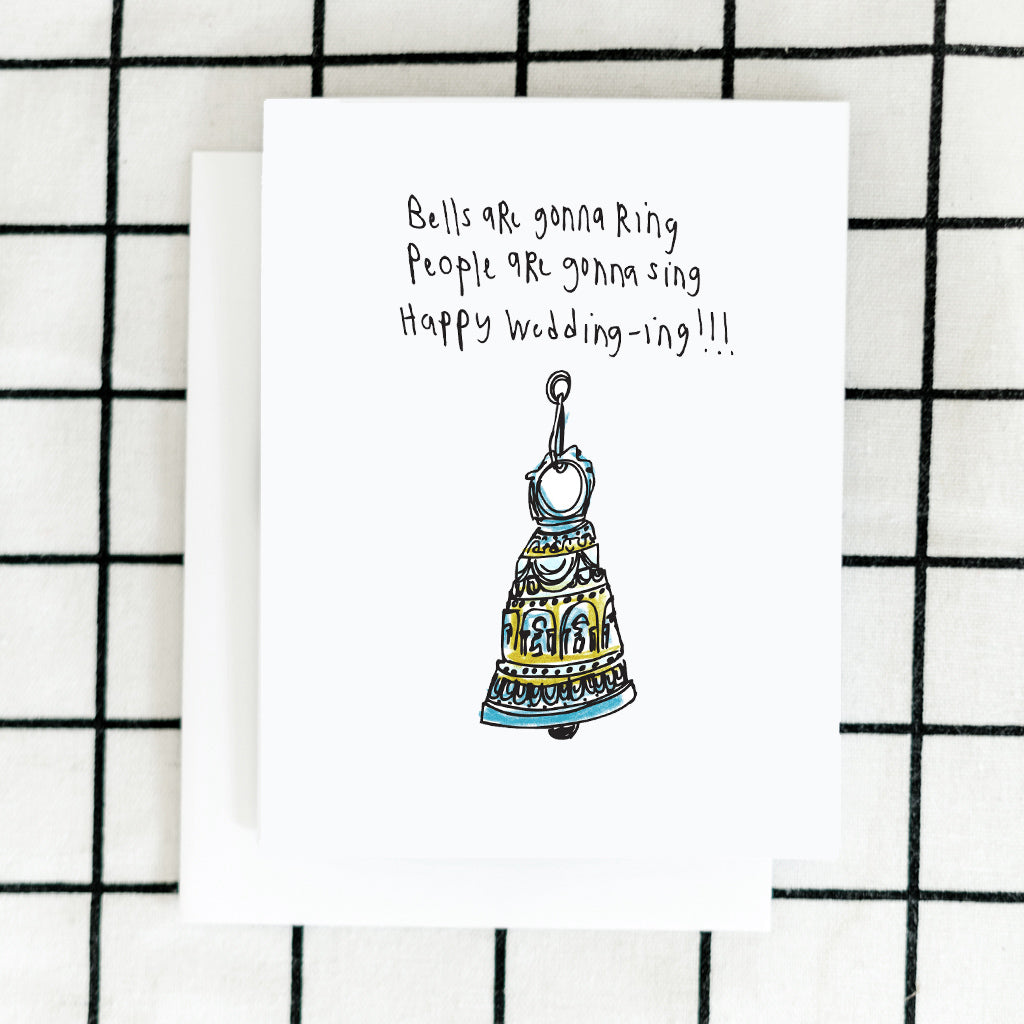 Bells are gonna Ring
People are gonna sing
Happy Wedding-ing!!!